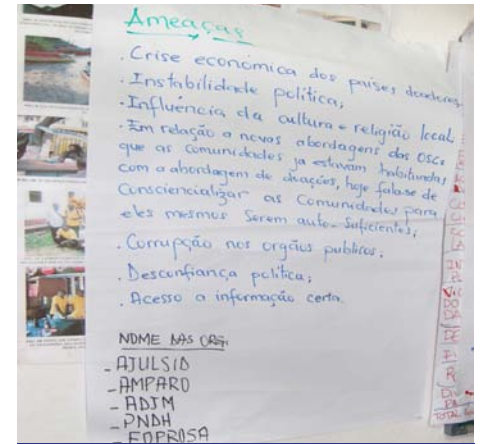 Ameaças
. Crise económica dos países doadores
. Instabilidade política;
. Influência da cultura e religião local,
. Em relação a novas abordagens das OSCs
que as comunidades ja estavam habituadas
com a abordagem de doações, hoje fala-se de
Consciencializar as Comunidades para
eles mesmos serem auto-suficientes;
. Corrupção nos orgãos publicos;
. Desconfiança política;
. Acesso a informação certa.
NOME DAS ORG:
- AJULSID
- AMPARO
- ADJM
- PNDH
- EDPROSA
TOTAL